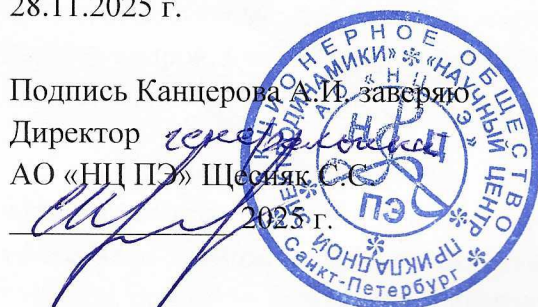 28.11.2025 г.
Подпись Канцерова А.И. заверяю
Директор генеральный
АО «НЦ ПЭ» Щесняк С.С.
2025 г.
АКЦИОНЕРНОЕ ОБЩЕСТВО
«НАУЧНЫЙ ЦЕНТР ПРИКЛАДНОЙ ЭЛЕКТРОДИНАМИКИ»
Санкт-Петербург
АО «НЦ ПЭ»
НЦ
ПЭ